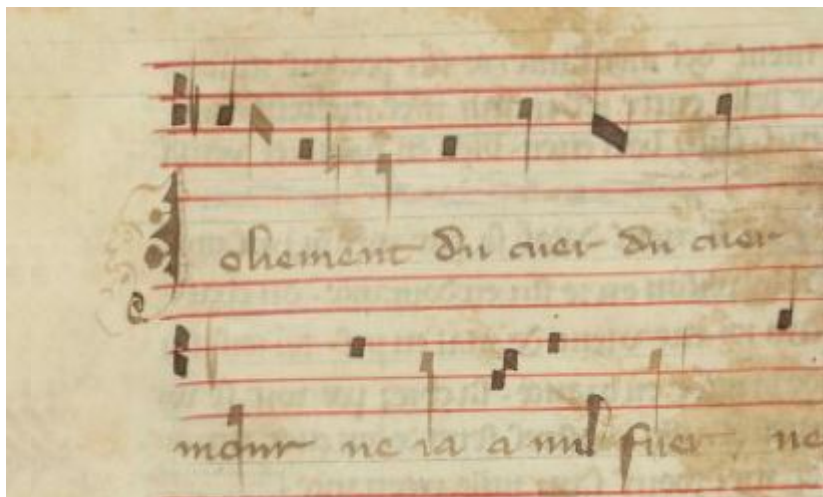 Joliement du cuer du cuer
mour ne ia a nul fuer ne